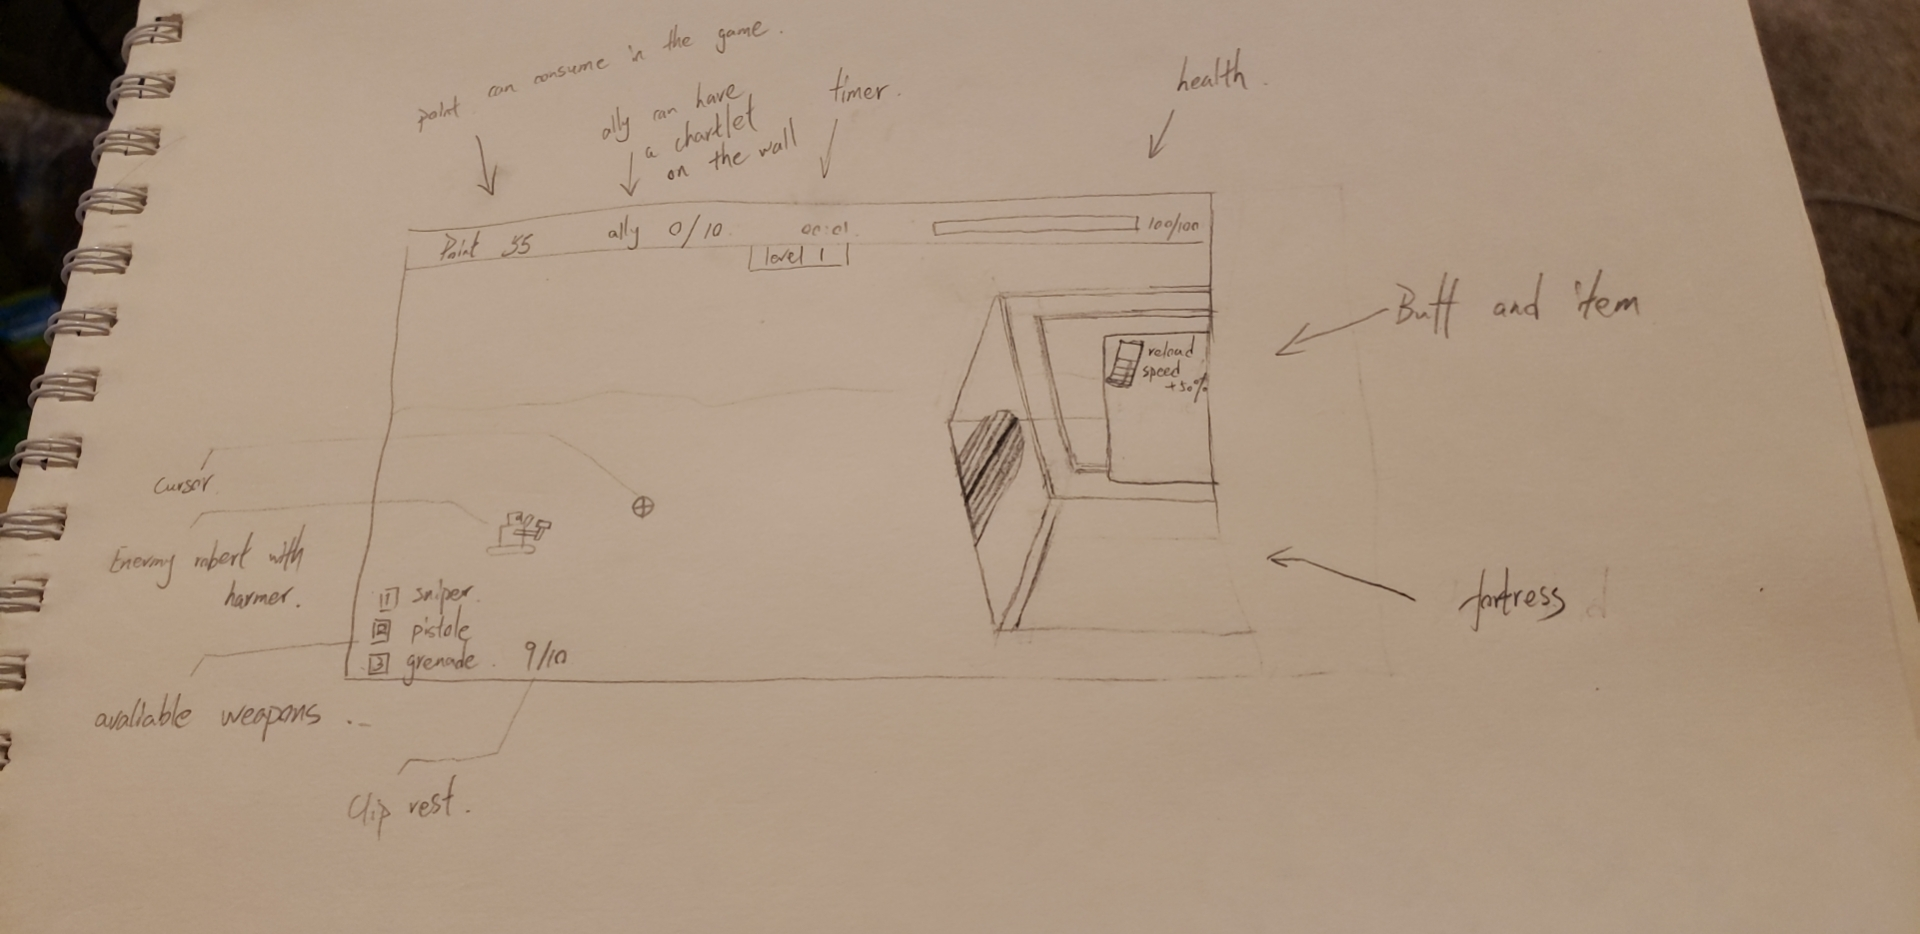 point can consume in the game.
ally can have
a chartlet
on the wall
timer.
health.
Point 55
ally 0/10
00:01
100/100
level 1
Buff and item
reload
speed
+50%
cursor
Enermy robert with
harmer.
1 sniper
2 pistole
3 grenade. 9/10
fortress
avaliable weapons.
Clip rest.